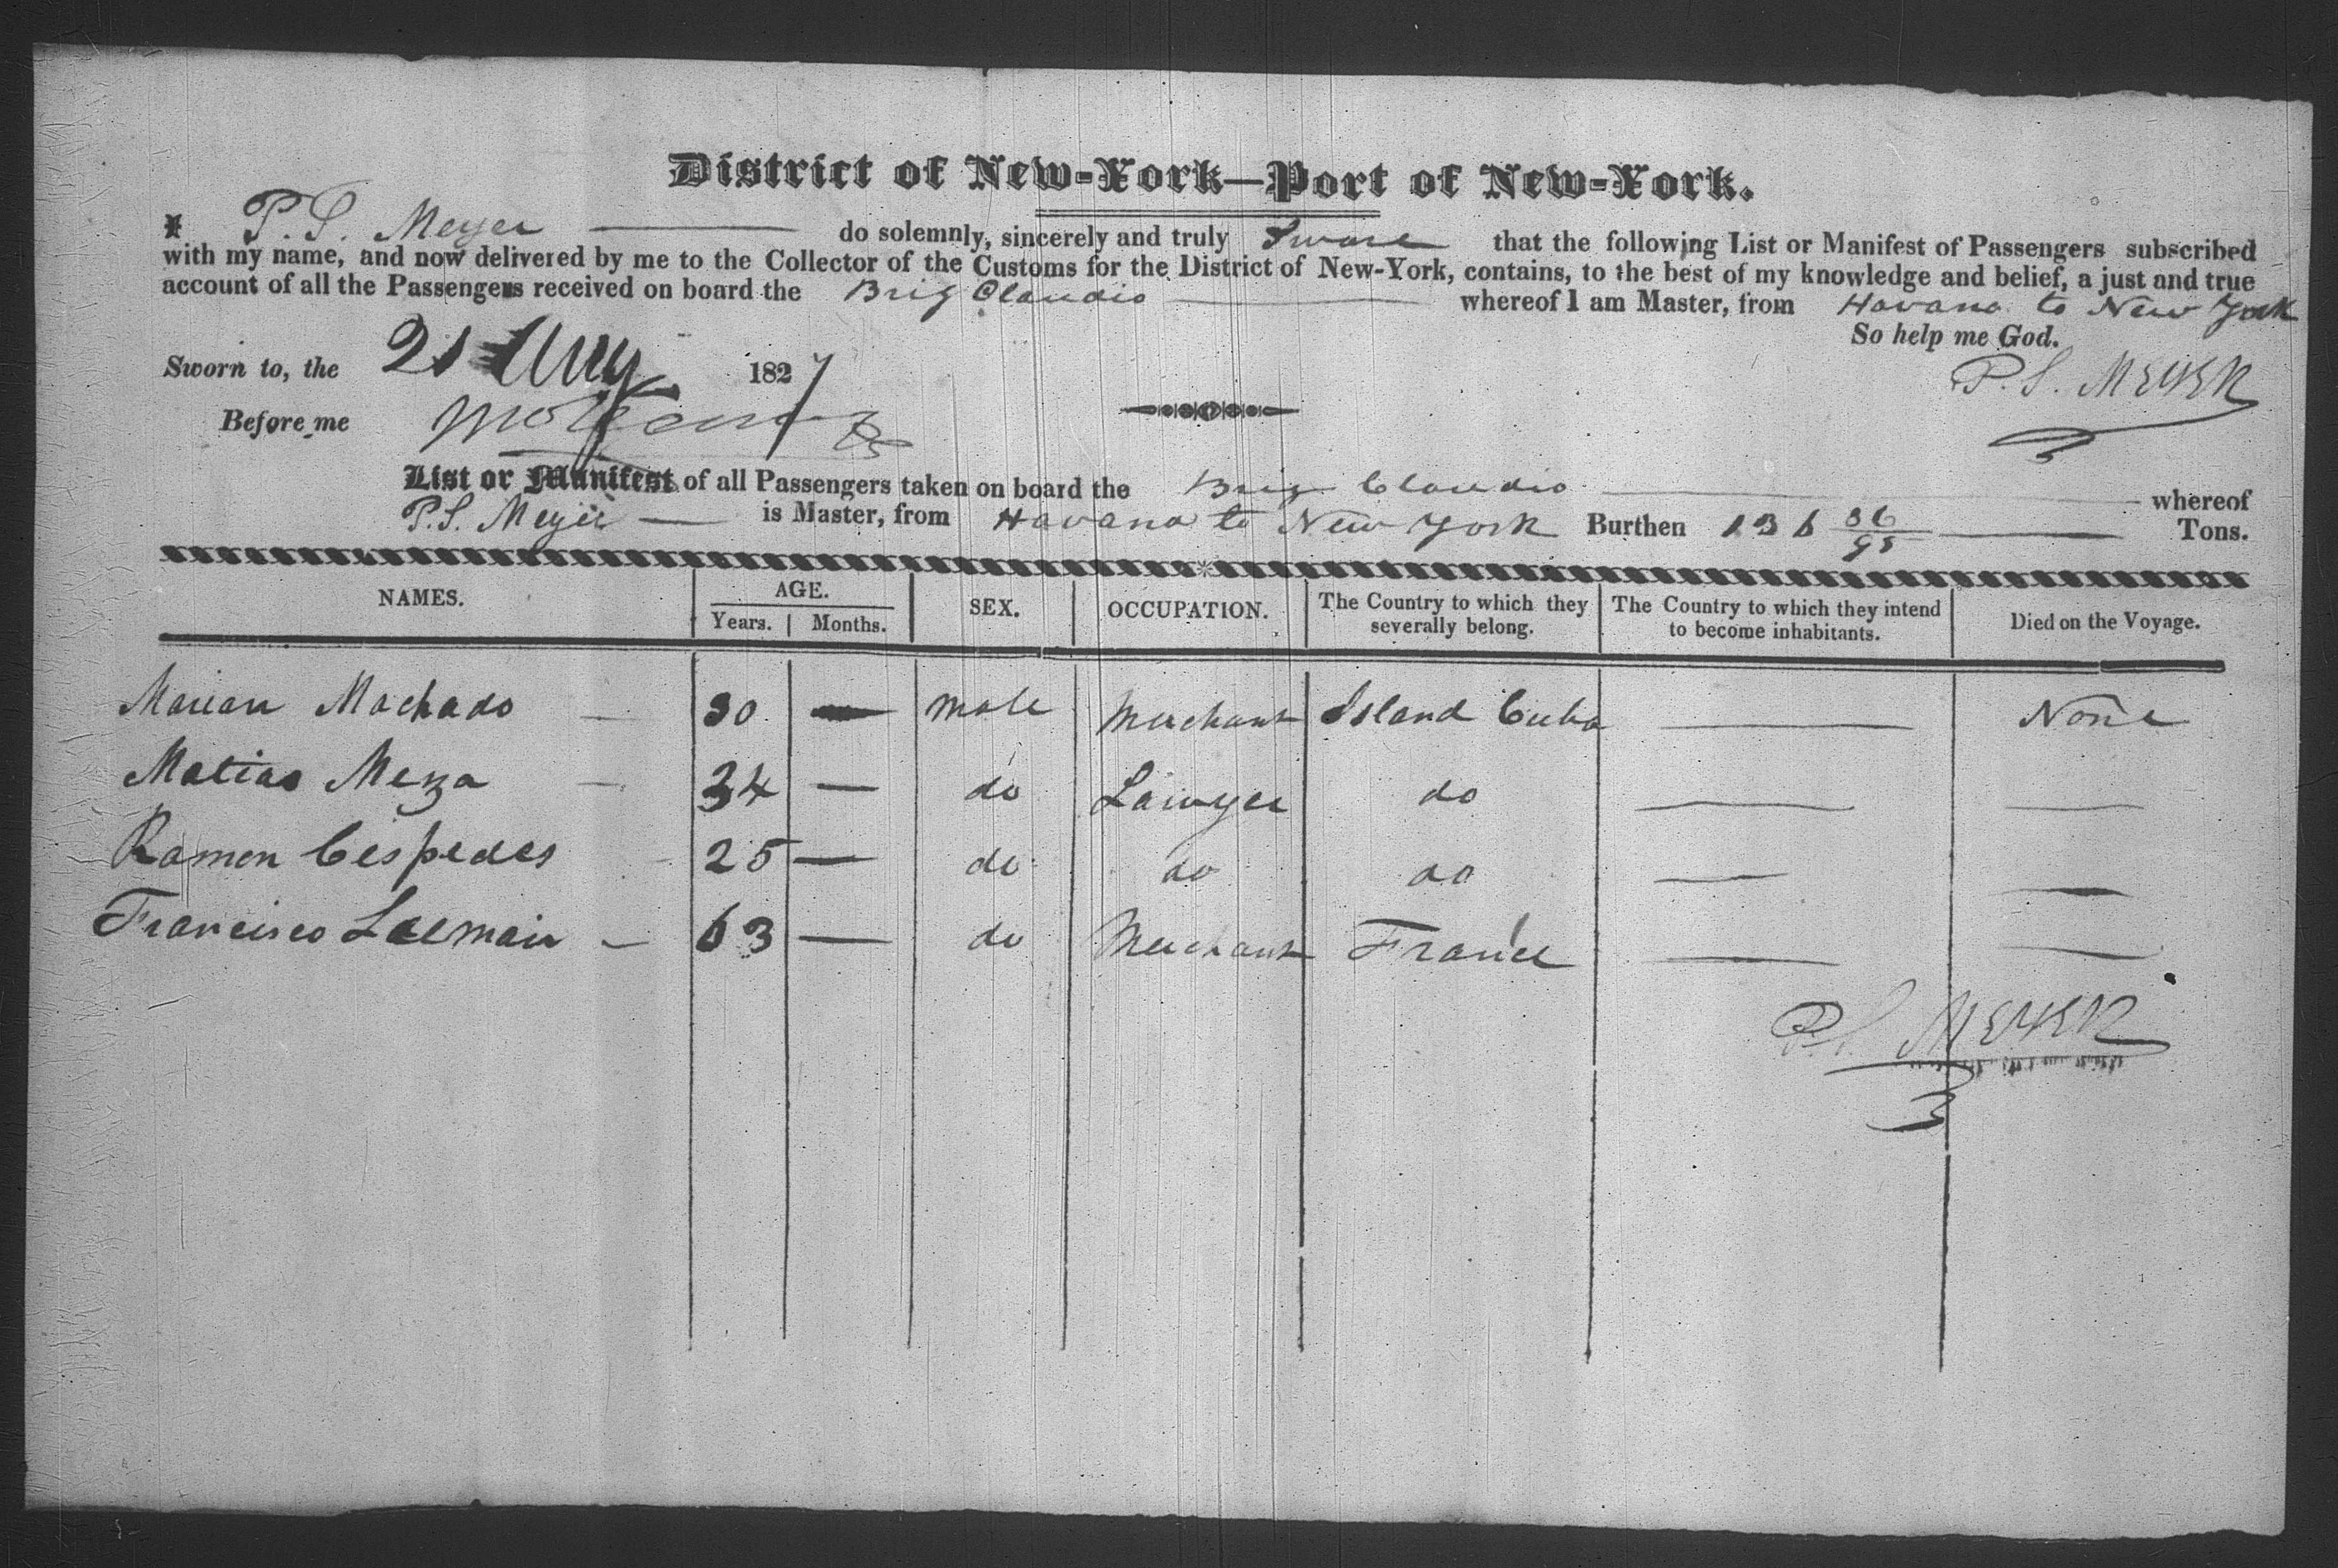 District of New-York—Port of New-York.
I P. S. Meyer do solemnly, sincerely and truly Sware that the following List or Manifest of Passengers subscribed
with my name, and now delivered by me to the Collector of the Customs for the District of New-York, contains, to the best of my knowledge and belief, a just and true
account of all the Passengers received on board the Brig Claudio whereof I am Master, from Havana to New York
So help me God.
Sworn to, the 21 Aug 1827
P. S. MEYER
Before me
List or Manifest of all Passengers taken on board the Brig Claudio whereof
P. S. Meyer is Master, from Havana to New York Burthen 136 86/95 Tons.
NAMES. AGE. Years. Months. SEX. OCCUPATION. The Country to which they severally belong. The Country to which they intend to become inhabitants. Died on the Voyage.
Marian Machado — 30 — male Merchant Island Cuba — None
Matias Meza — 34 — do Lawyer do — —
Ramon Cespedes 25 — do do do — —
Francisco — 63 — do Merchant France — —
P. S. MEYER